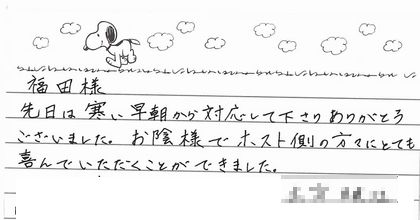 福田様
先日は寒い早朝から対応して下さりありがとう
ございました。お陰様でホスト側の方々にとても
喜んでいただくことができました。